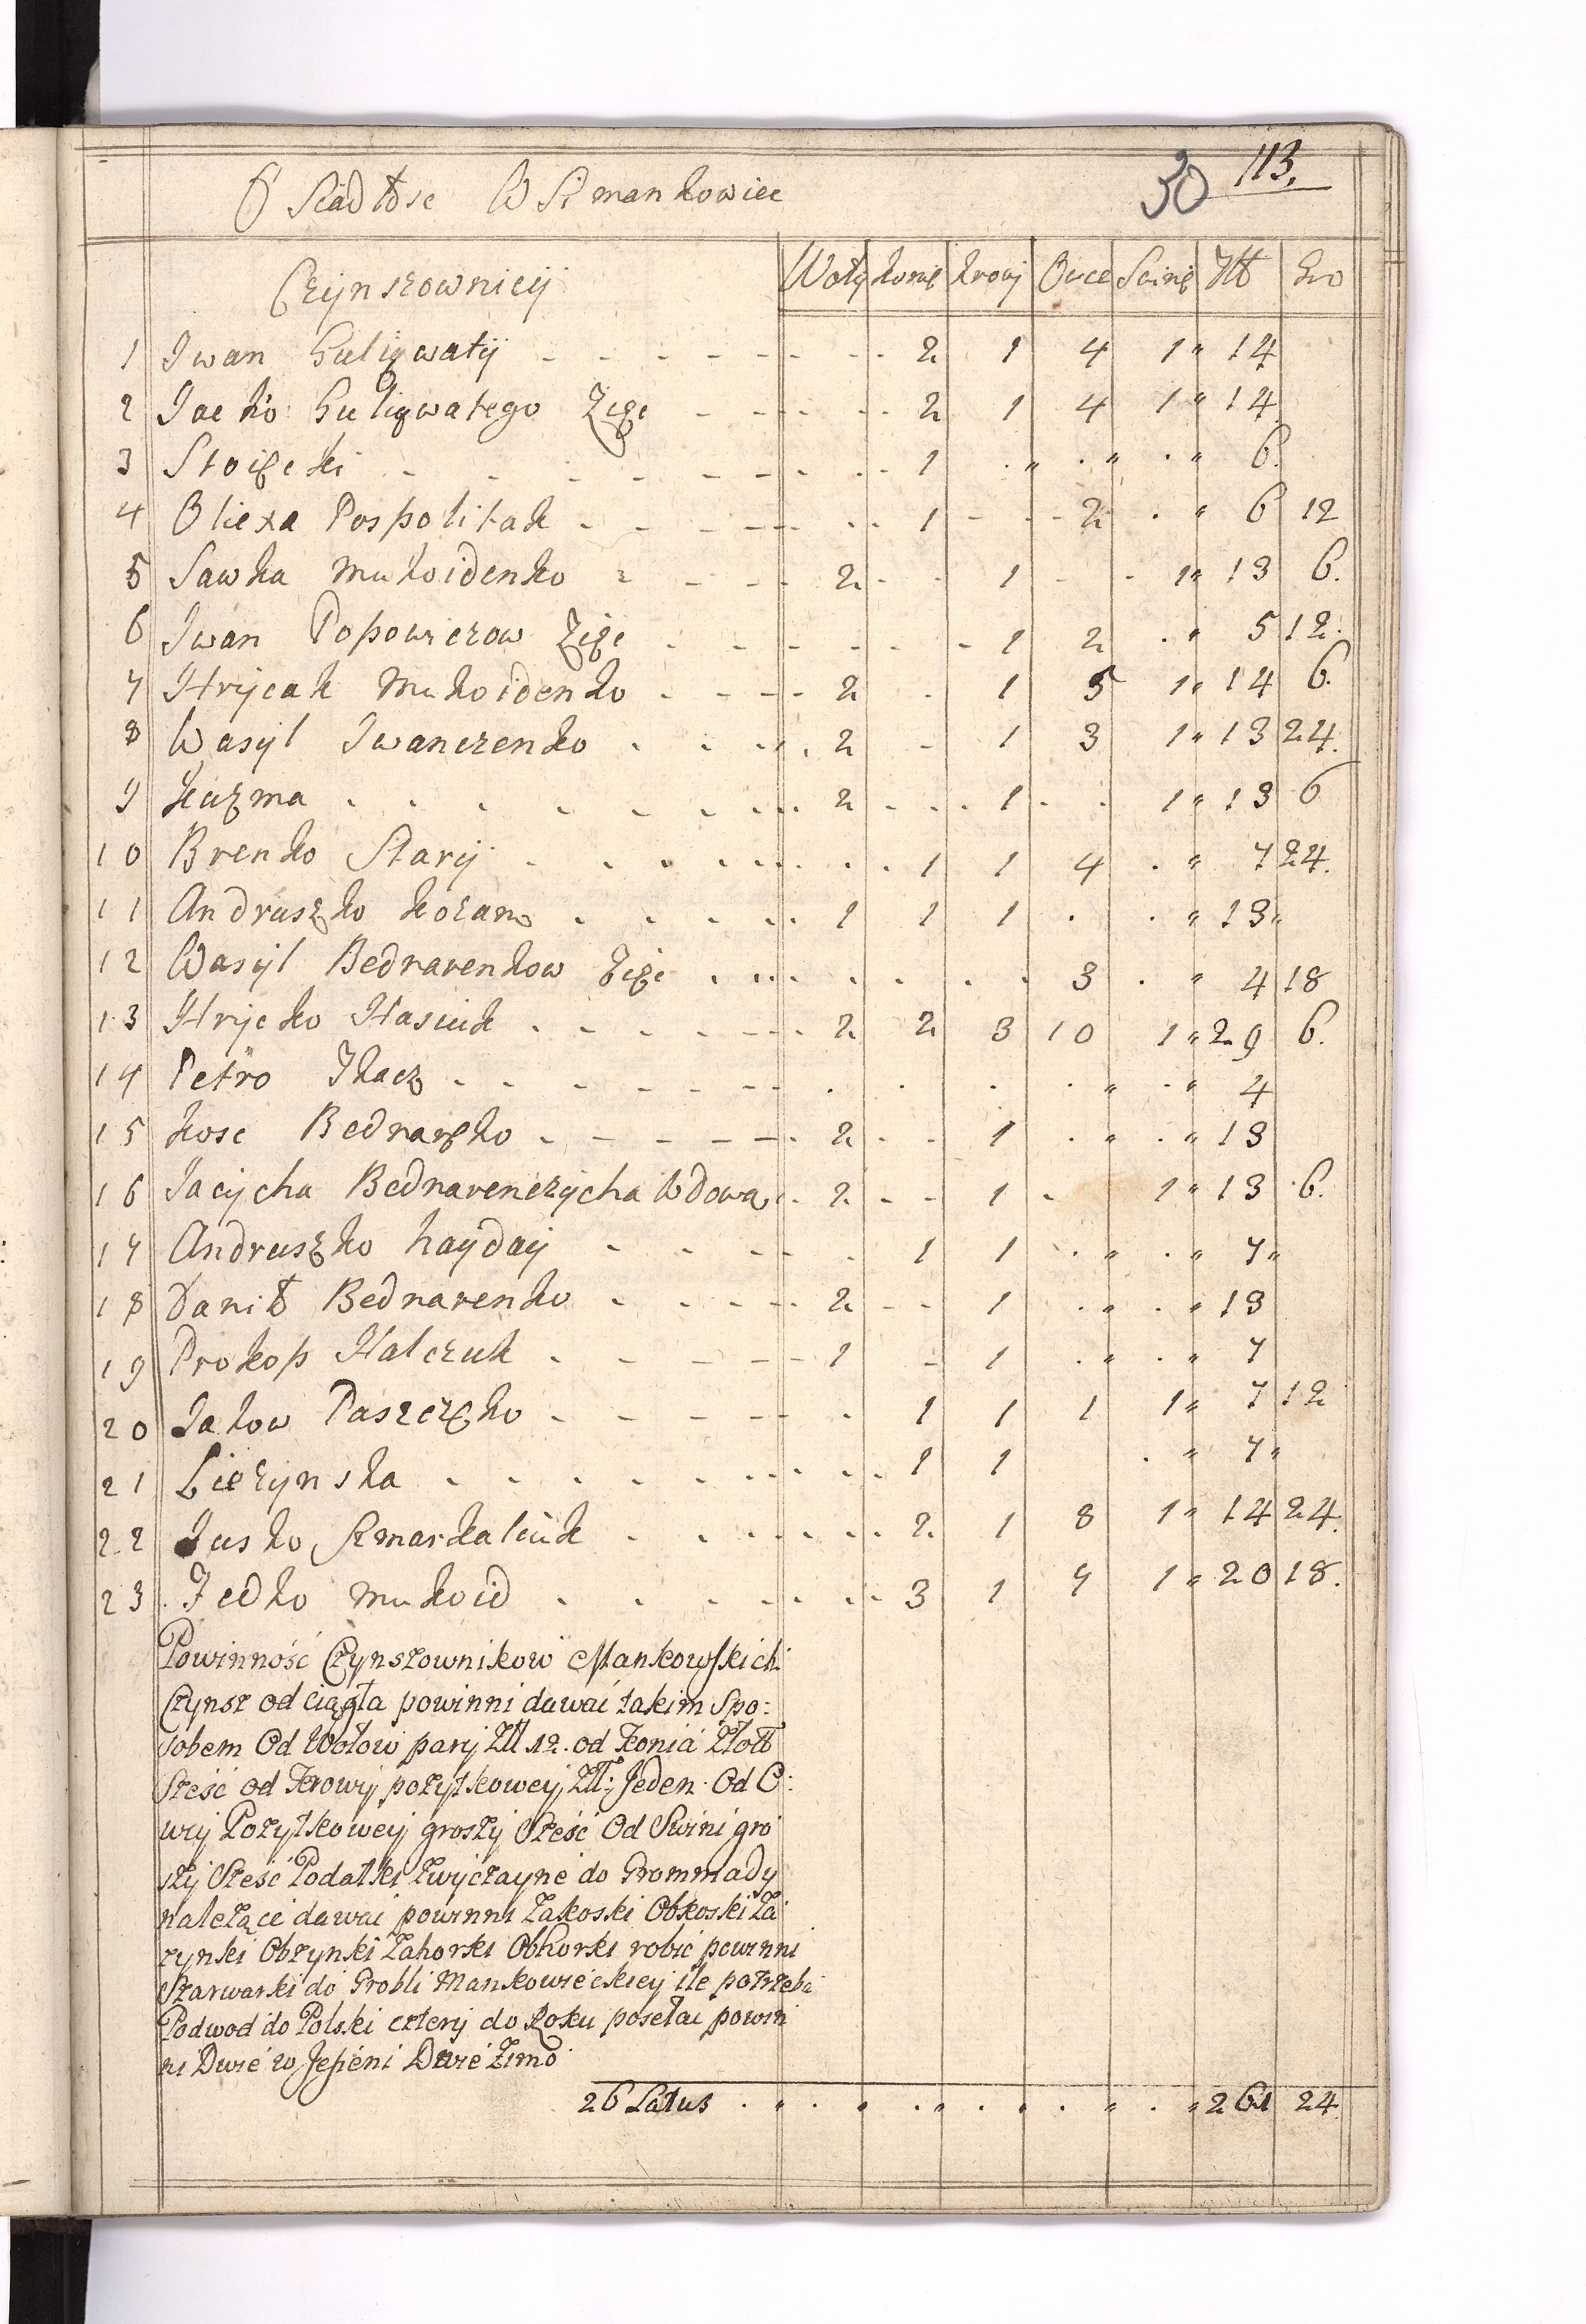 30 113.
Osiadłosc W Si mankowiec
Czynszownicy Woły konie krowy Owce Swinie Złł Gro
1 Iwan Guligwatij 2 1 4 1 " 14
2 Iacko Guligwatego Zięc 2 1 4 1 " 14
3 Stoiecki 1 " " " 6.
4 Olexa Pospolitak 1 2 " 6 12
5 Sawka Mukoidenko 2 1 1 " 13 6.
6 Iwan Popowiczow Zięc 1 2 " 5 12.
7 Hrycak Mukoidenko 2 1 5 1 " 14 6.
8 Wasyl Iwanczenko 2 1 3 1 " 13 24.
9 Kuzma 2 1 1 " 13 6
10 Brenko Stary 1 1 4 " 7 24.
11 Andruszko kozano 1 1 1 " 13 "
12 Wasyl Bednarenkow Zięc 3 " 4 18
13 Hrycko Hasiuk 2 2 3 10 1 " 29 6.
14 Petro Tkacz " " 4
15 kosc Bednarzko 2 1 " " 13
16 Jacycha Bednarenczycha Wdowa 2 1 1 " 13 6.
17 Andruszko hayday 1 1 " " 7 "
18 Danił Bednarenko 2 1 " " 13
19 Prokop Halczuk 1 1 " " 7
20 Jakow Paszczęko 1 1 1 1 " 7 12
21 Liezynska 1 1 " 7 "
22 Jusko Szmarkaliuk 2 1 8 1 " 14 24.
23 Fedko Mukoid 3 1 7 1 " 20 18.
Powinność Czynszownikow Mankowskich
Czynsz od ciągła powinni dawać takim Spo:
sobem Od Wołow pary Złł 12. od Konia Złott
Sześć od Krowy pożytkowey Złł: Jeden. Od O:
wcy Pożytkowey groszy Sześć Od Swini gro
szy Sześć Podatki zwyczayne do Grommady
należące dawać powinni Zakoski Obkoski Za
zynki Obzynki Zahorki Obhorki robić powinni
Szarwarki do Grobli Mankowieckiey ile potrzeba
Podwod do Polski cztery do Roku posełac powin
ni Dwie w Jesieni Dwie Zimo
26 Latus " " " " " " 261 24.